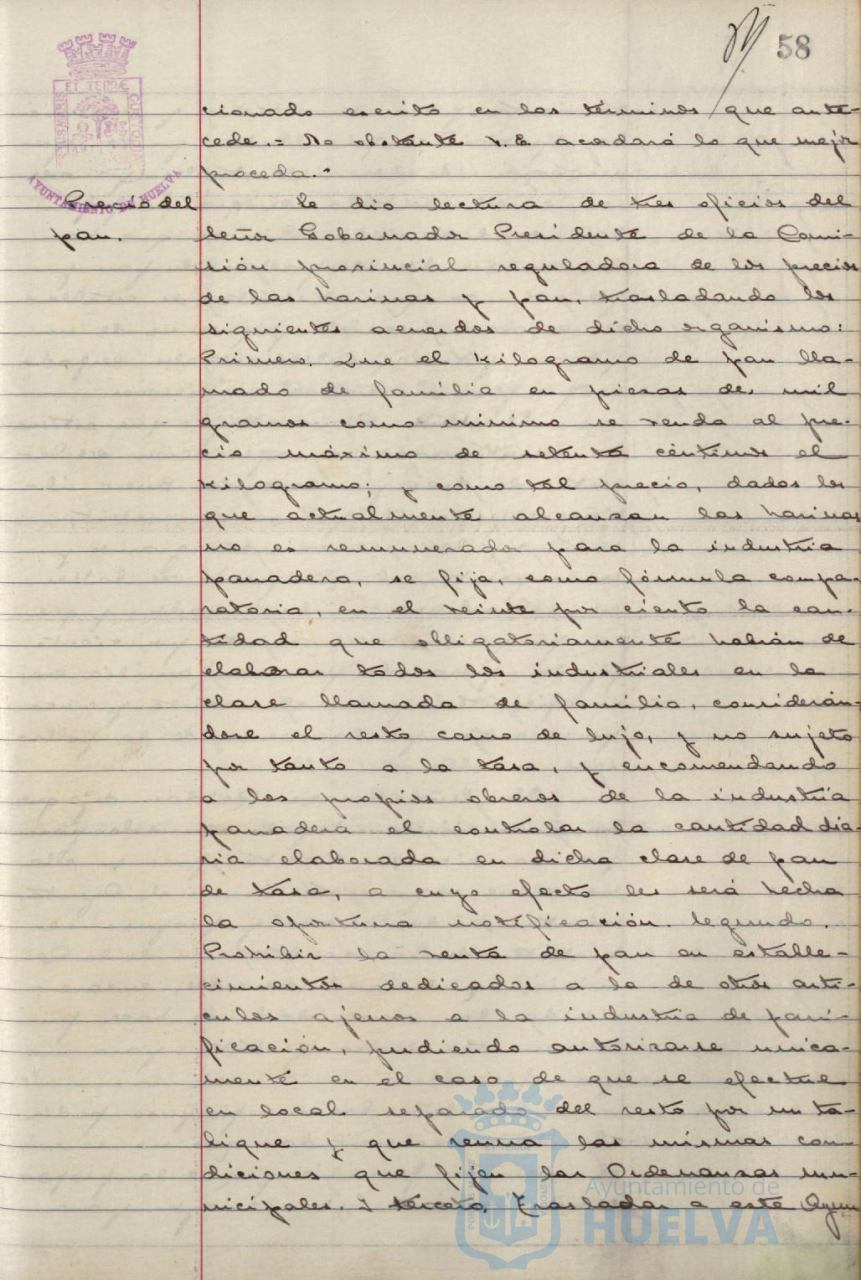 58
cionado escrito en los términos que ante-
cede.= No obstante V.E. acordará lo que mejor
proceda.-
Precio del
pan.
Se dio lectura de tres oficios del
Señor Gobernador Presidente de la Comi-
sión provincial reguladora de los precios
de las harinas y pan, trasladando los
siguientes acuerdos de dicho organismo:
Primero. Que el kilogramo de pan lla-
mado de familia en piezas de mil
gramos como mínimo se venda al pre-
cio máximo de setenta céntimos el
kilogramo; y como tal precio, dados los
que actualmente alcanzan las harinas
no es remunerador para la industria
panadera, se fija, como fórmula compa-
ratoria, en el veinte por ciento la can-
tidad que obligatoriamente habrán de
elaborar todos los industriales en la
clase llamada de familia, considerán-
dose el resto como de lujo, y no sujeto
por tanto a la tasa, y encomendando
a los propios obreros de la industria
panadera el controlar la cantidad dia-
ria elaborada en dicha clase de pan
de tasa, a cuyo efecto les será hecha
la oportuna notificación. Segundo.
Prohibir la venta de pan en estable-
cimientos dedicados a la de otros artí-
culos ajenos a la industria de pani-
ficación, pudiendo autorizarse única-
mente en el caso de que se efectúe
en local separado del resto por un ta-
bique y que reuna las mismas con-
diciones que fijen las Ordenanzas mu-
nicipales. Y tercero. Trasladar a este Ayun
AYUNTAMIENTO DE HUELVA
Ayuntamiento de
HUELVA